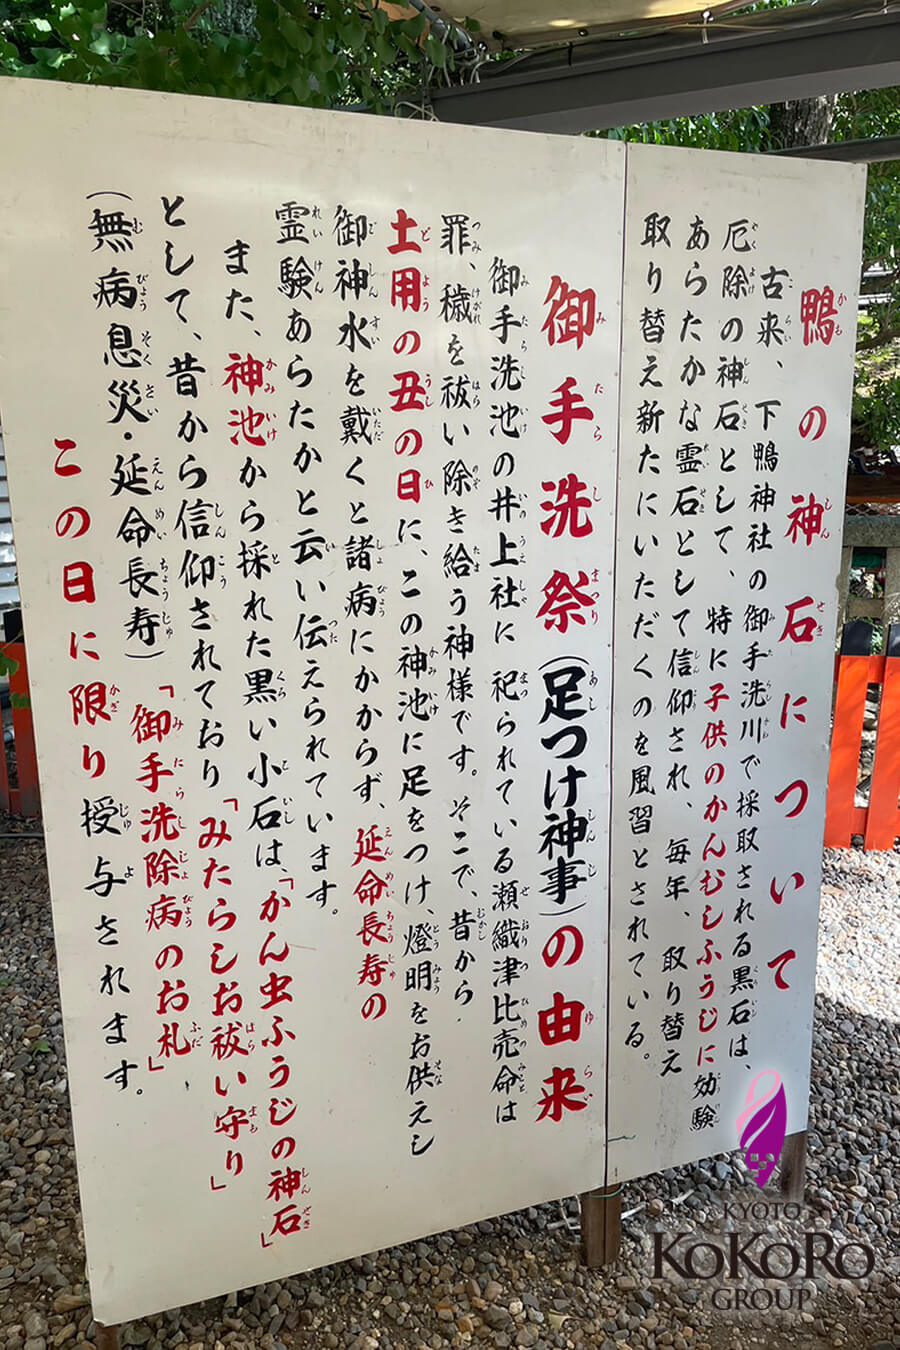 鴨の神石について
古来、下鴨神社の御手洗川で採取される黒石は、
厄除の神石として、特に子供のかんむしふうじに効験
あらたかな霊石として信仰され、毎年、取り替え
取り替え新たにいただくのを風習とされている。
御手洗祭(足つけ神事)の由来
御手洗池の井上社に祀られている瀬織津比売命は
罪、穢を祓い除き給う神様です。そこで、昔から
土用の丑の日に、この神池に足をつけ、燈明をお供えし
御神水を戴くと諸病にかからず、延命長寿の
霊験あらたかと云い伝えられています。
また、神池から採れた黒い小石は、「かん虫ふうじの神石」
として、昔から信仰されており「みたらしお祓い守り」
(無病息災・延命長寿)「御手洗除病のお札」
この日に限り授与されます。
KYOTO
KoKoRo
GROUP